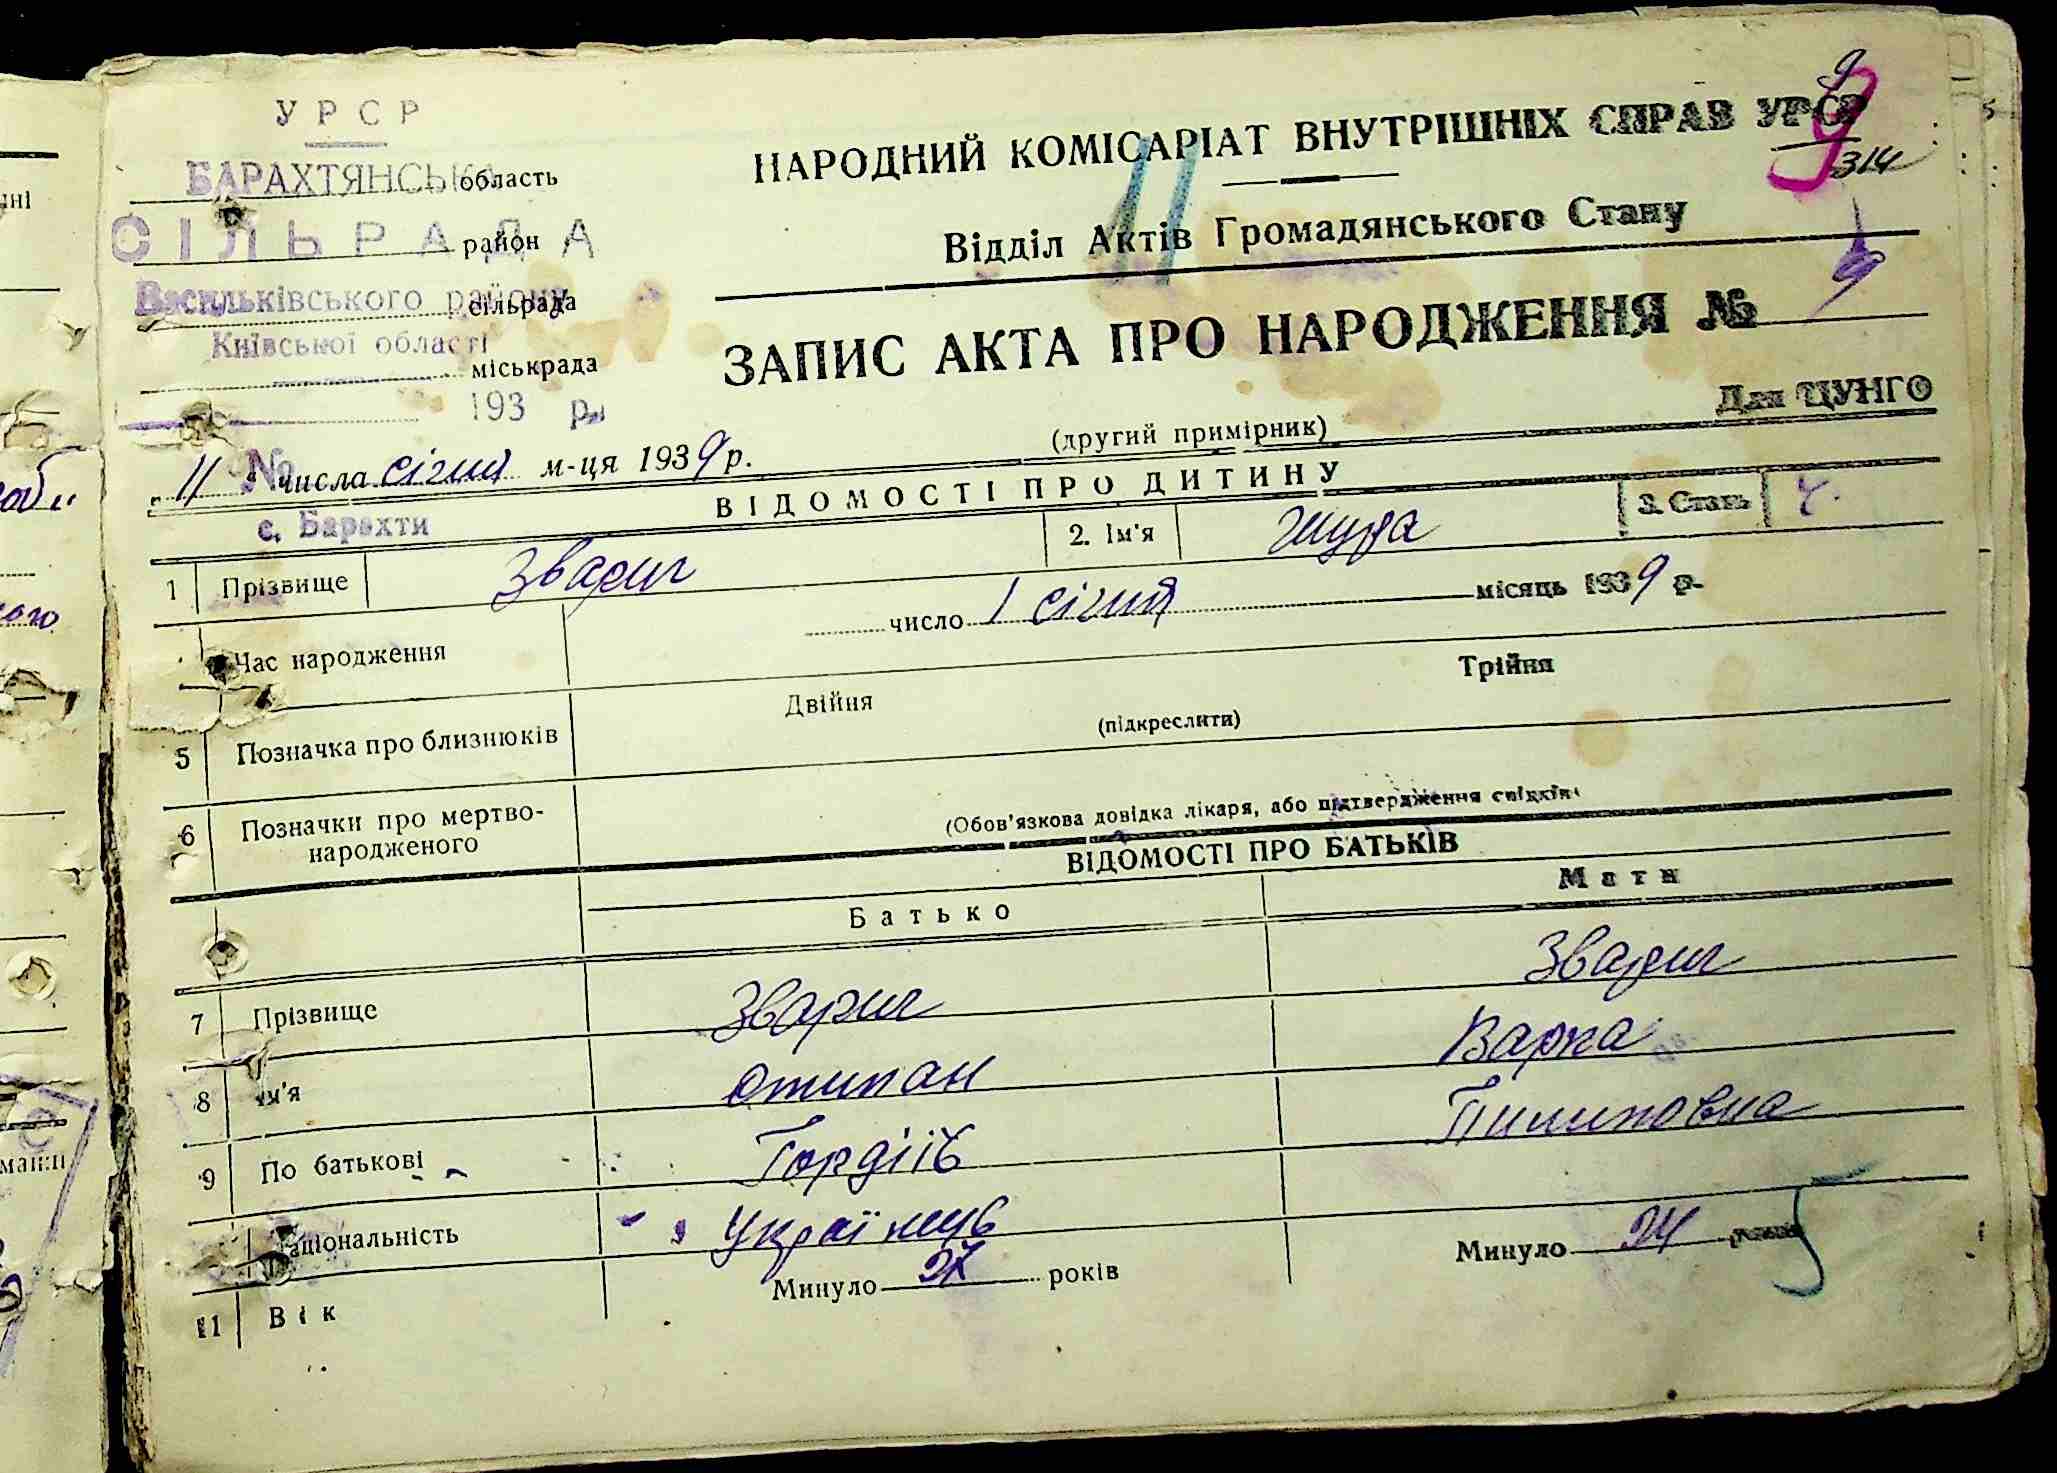 УРСР
БАРАХТЯНСЬКА область
СІЛЬРАДА район
Васильківського району сільрада
Київської області міськрада
193 р.
№
с. Барахти
9
9
314
НАРОДНИЙ КОМІСАРІАТ ВНУТРІШНІХ СПРАВ УРСР
11
Відділ Актів Громадянського Стану
ЗАПИС АКТА ПРО НАРОДЖЕННЯ № 9
Для ЦУНГО
(другий примірник)
"11" числа січня м-ця 1939 р.
ВІДОМОСТІ ПРО ДИТИНУ
1 Прізвище Зварич 2. Ім'я 3. Стать ч.
Час народження число 1 січня місяць 1939 р.
5 Позначка про близнюків Двійня Трійня
(підкреслити)
6 Позначки про мертво-
народженого
(Обов'язкова довідка лікаря, або підтвердження свідків)
ВІДОМОСТІ ПРО БАТЬКІВ
Батько Мати
7 Прізвище Зварич Зварич
8 Ім'я Стипан Варка
9 По батькові Гордіїв Пилиповна
Національність
11 Вік Минуло 27 років Минуло 24 років
5